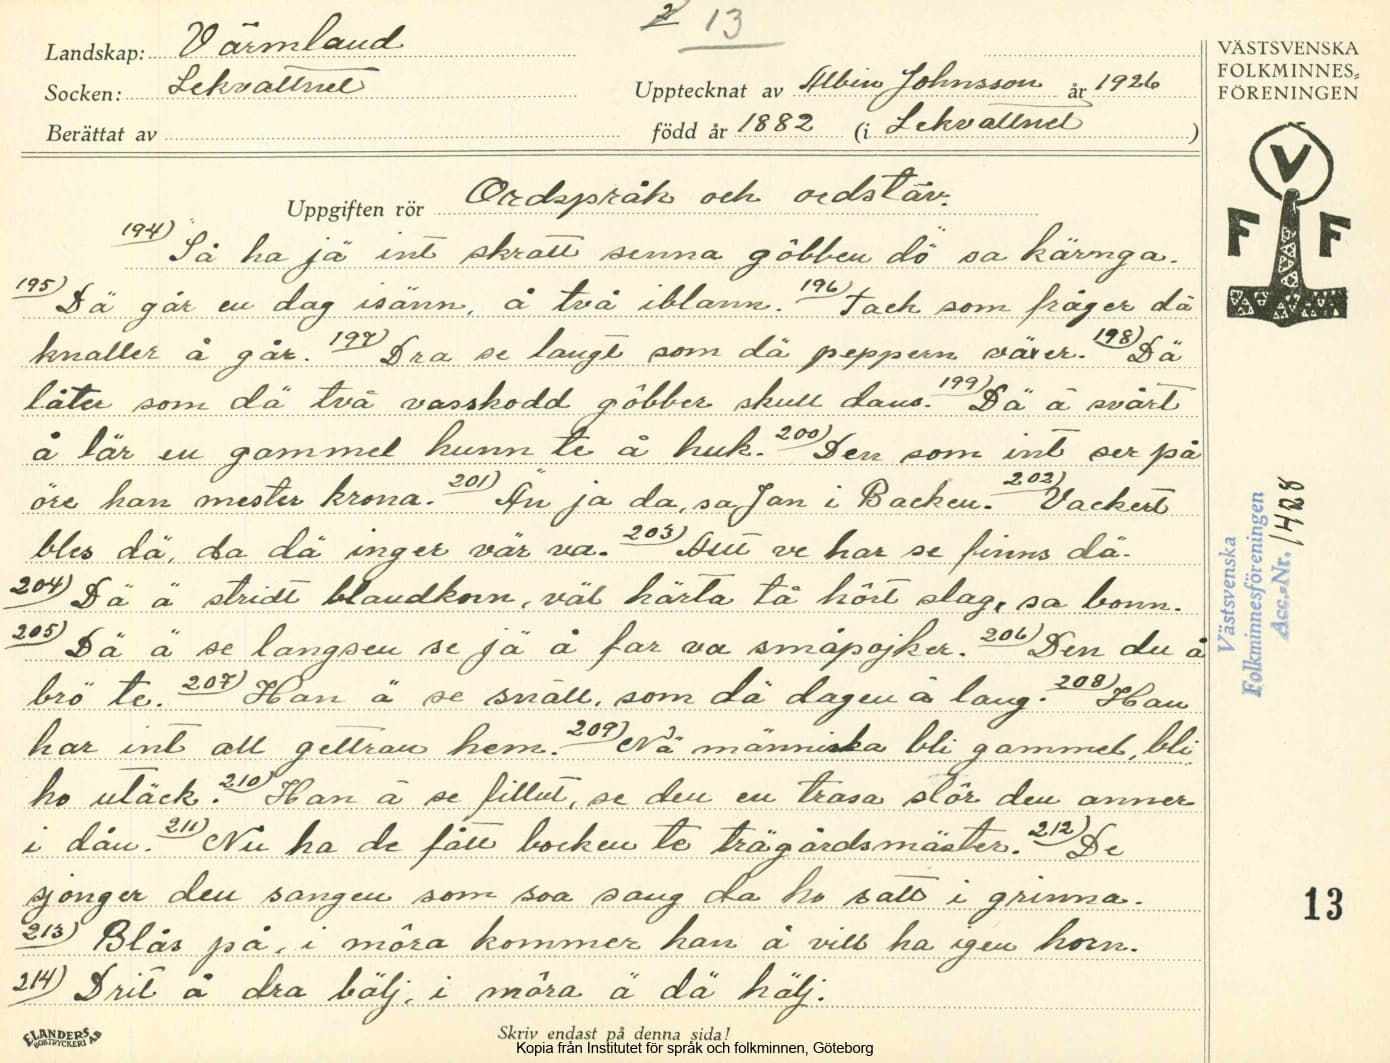 2 13
Landskap: Värmland
Socken: Lekvattnet
Upptecknat av Albin Johnsson år 1926
Berättat av
född år 1882 (i Lekvattnet)
VÄSTSVENSKA
FOLKMINNES-
FÖRENINGEN
V
F F
Uppgiften rör Ordspråk och ordstäv.
194) "Så ha jä int skratt senna gôbben dö" sa kärnga.
195) Dä går en dag isänn, å två iblann. 196) Tack som fråger dä
knaller å går. 197) Dra se langt som dä peppern växer. 198) Dä
låter som dä två vasskodd gôbber skull dans. 199) Dä ä svårt
å lär en gammel hunn te å huk. 200) Den som int ser på
öre han mester krona. 201) Än ja da, sa Jan i Backen. 202) Vackert
bles dä, da dä inger vär va. 203) Att ve har se finns dä.
204) Dä ä stridt blandkorn, väl härta tå hôrt slag, sa bonn.
205) Dä ä se langsen se jä å far va småpojker. 206) Den du å
brö te. 207) Han ä se snäll, som dä dagen å lang. 208) Han
har int all gettran hem. 209) Nä människa bli gammel, bli
ho utäck. 210) Han ä se fillut, se den en trasa slôr den anner
i dån. 211) Nu ha de fått bocken te trägårdsmäster. 212) De
sjonger den sangen som soa sang da ho satt i grinna.
213) Blås på, i môra kommer han å vill ha igen horn.
214) Drit å dra bälj, i môra ä dä hälj.
Västsvenska
Folkminnesföreningen
Acc.-Nr. 1428
13
ELANDERS
BOKTRYCKERI AB
Skriv endast på denna sida!
Kopia från Institutet för språk och folkminnen, Göteborg